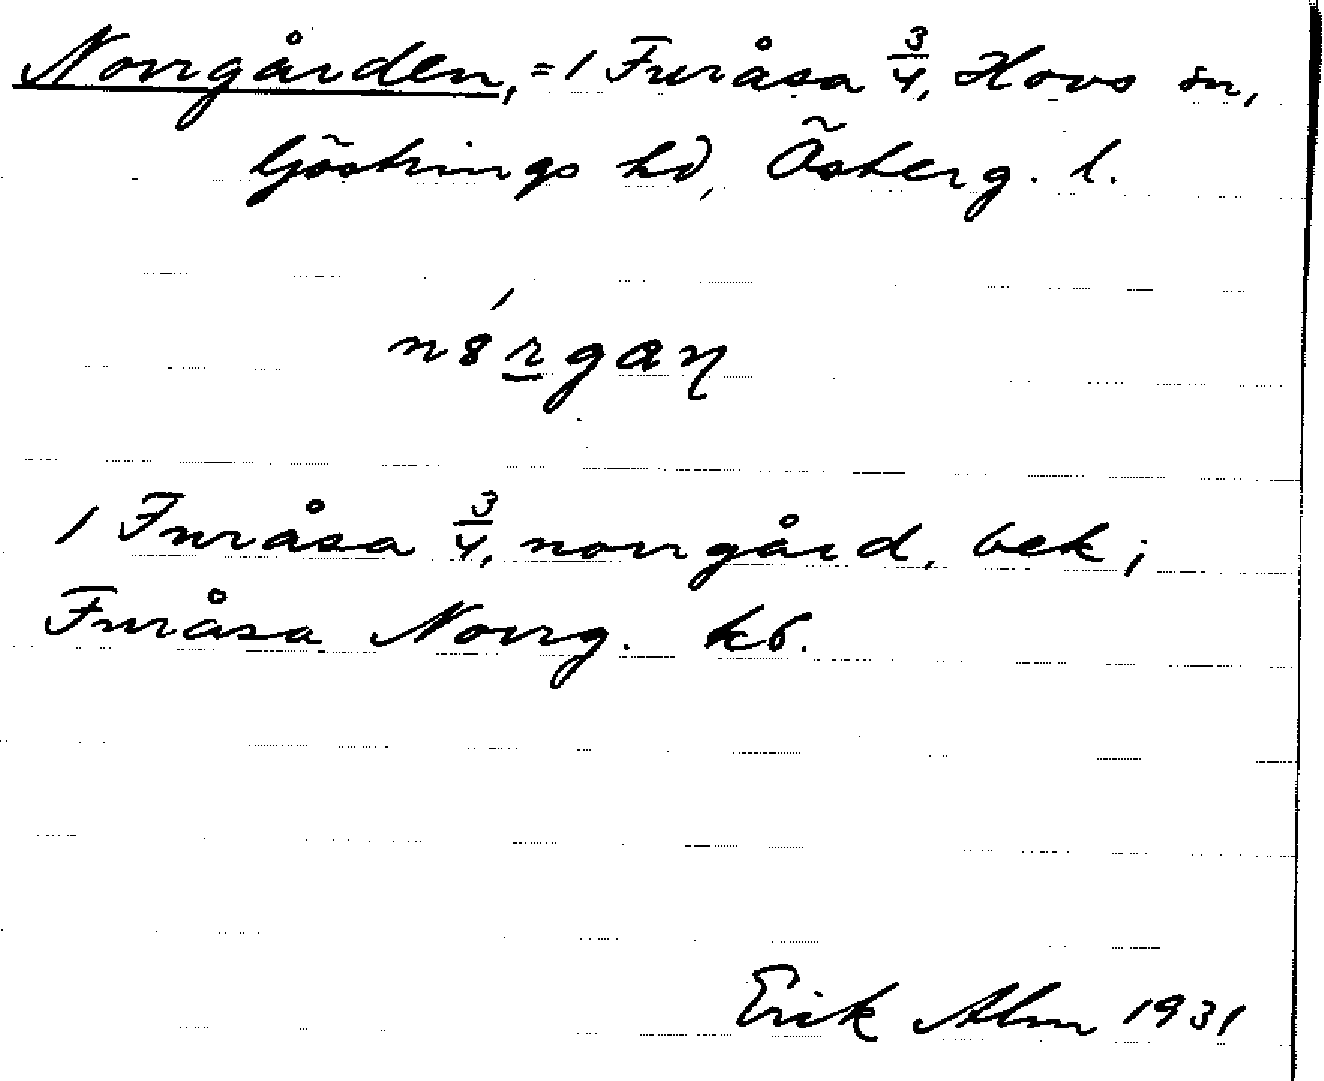 Norrgården, = 1 Furåsa 3/4, Hovs sn,
Göstrings hd, Österg. l.
n8rgaɳ
1 Furåsa 3/4, norrgård, bek;
Furåsa Norrg. kb.
Erik Alm 1931